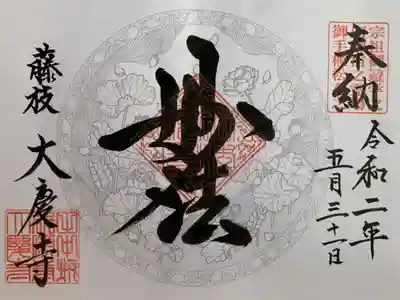 奉納
令和二年
五月三十一日
妙法
藤枝 大慶寺